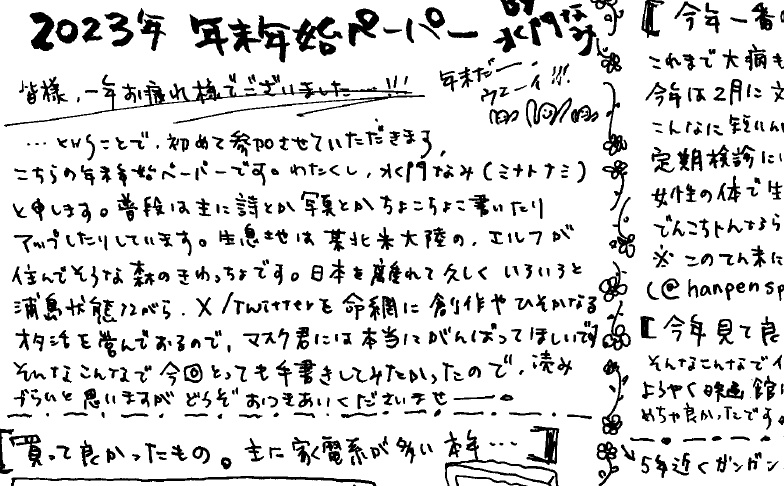 2023年 年末年始ペーパー by 水門なみ
皆様、一年お疲れ様でございました…!!!
年末だー
ウェーイ!!!
…ということで、初めて参加させていただきます、
こちらの年末年始ペーパーです。わたくし、水門なみ(ミナトナミ)
と申します。普段は主に詩とか写真とかちょこちょこ書いたり
アップしたりしています。生息地は某北米大陸の、エルフが
住んでそうな森のきわっちょです。日本を離れて久しくいろいろと
浦島状態ながら、X/Twitterを命綱に創作やひそかなる
オタ活を営んでおるので、マスク君には本当にがんばってほしいです
そんなこんなで今回とっても手書きしてみたかったので、読み
づらいと思いますがどうぞおつきあいくださいませ——。
【買って良かったもの。主に家電系が多い本年…】
【今年一番
これまで大病も
今年は2月に
こんなに短い
定期検診に
女性の体で生
でんこちゃんなら
※このてん末に
(@hanpensp
【今年見て良
そんなこんなでイ
ようやく映画館
めちゃ良かったです。
5年近くガンガン